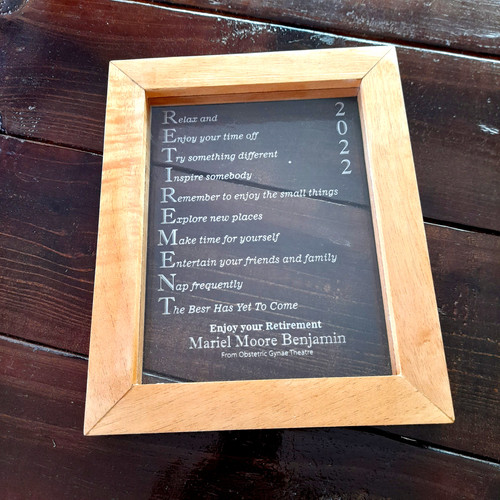 Relax and
Enjoy your time off
Try something different
Inspire somebody
Remember to enjoy the small things
Explore new places
Make time for yourself
Entertain your friends and family
Nap frequently
The Besr Has Yet To Come
2022
Enjoy your Retirement
Mariel Moore Benjamin
From Obstetric Gynae Theatre